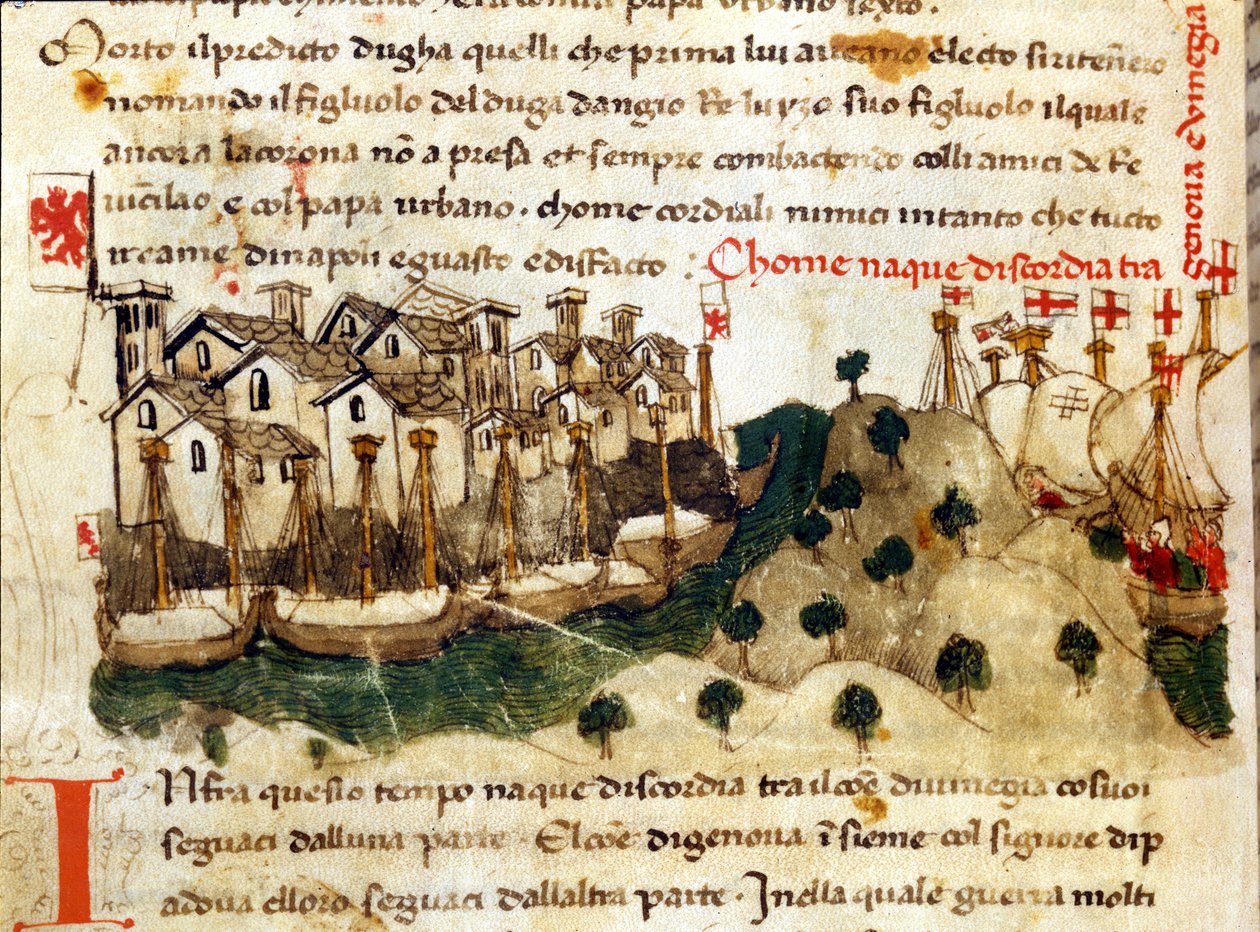 papa urbino sexto.
Morto il predicto dugha quelli che prima lui aueano electo si ritēnero
nomando il figluolo del duga dangio Re luyzo suo figluolo il quale
ancora la corona nō a presa et sempre combactendo colli amici de Re
uīcilao e col papa urbano. chome cordiali nimici in tanto che tucto
ireame di napoli e guasto e disfacto :
Chome naque discordia tra
genoua e vinegia
INfra questo tempo naque discordia tra il coē di uinegia co suoi
seguaci dalluna parte. El coē di genoua īsieme col signore di p
adoua e lloro seguaci dallaltra parte. Inella quale guerra molti